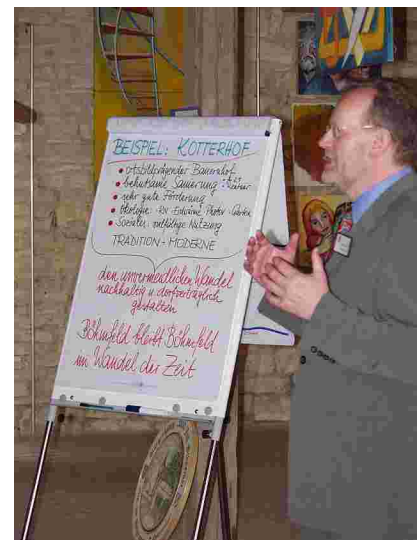 BEISPIEL: KOTTERHOF
• ortsbildprägender Bauernhof
• behutsame Sanierung:
• sehr gute Förderung
• Ökologie: Photov.
• Soziales: vielfältige Nutzung
TRADITION - MODERNE
den unvermeidlichen Wandel
nachhaltig u. dorfverträglich
gestalten
Böhmfeld bleibt Böhmfeld
im Wandel der Zeit